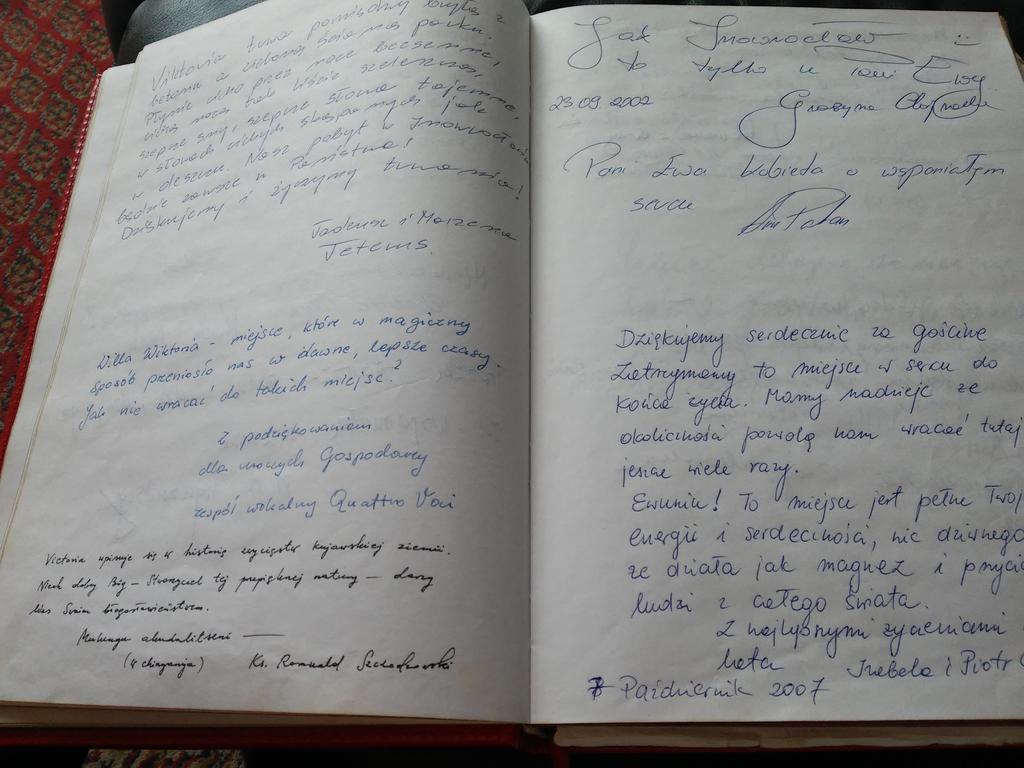 Wiktoria tuwa pomiędzy bryłą z
betonu a zieloną ścianą parku.
Płynie cicho przez noce bezsenne,
ciszą nocą tak liście szeleszczą,
szepcze sny, szepcze słowa tajemne,
w słowach cichych skąpanych jak
w deszczu. Nasz pobyt w Inowrocławiu
będzie zawsze u Państwa!
Dziękujemy i życzymy trwania!
Tadeusz i Marzena
Tetems.
Willa Wiktoria - miejsce, które w magiczny
sposób przeniosło nas w dawne, lepsze czasy.
Jak nie wracać do takich miejsc?
Z podziękowaniem
dla uroczych Gospodarzy
zespół wokalny Quattro Voci
Victoria wpisuje się w historię zwycięstw kujawskiej ziemi.
Niech dobry Bóg - Stworzyciel tej przepięknej natury - darzy
Was Swoim błogosławieństwem.
(4 chinganja) Ks. Romuald
Jak Inowrocław
to tylko u Pani Ewy
23.09.2002
Grażyna
Pani Ewa kobieta o wspaniałym
sercu
Dziękujemy serdecznie za gościnę
Zatrzymamy to miejsce w sercu do
końca życia. Mamy nadzieję że
okoliczności pozwolą nam wracać tutaj
jeszcze wiele razy.
Ewuniu! To miejsce jest pełne Twoj
energii i serdeczności, nic dziwnego
że działa jak magnez i przycią
ludzi z całego świata.
Z najlepszymi życzeniami
Beata Izabela i Piotr
7 Październik 2007